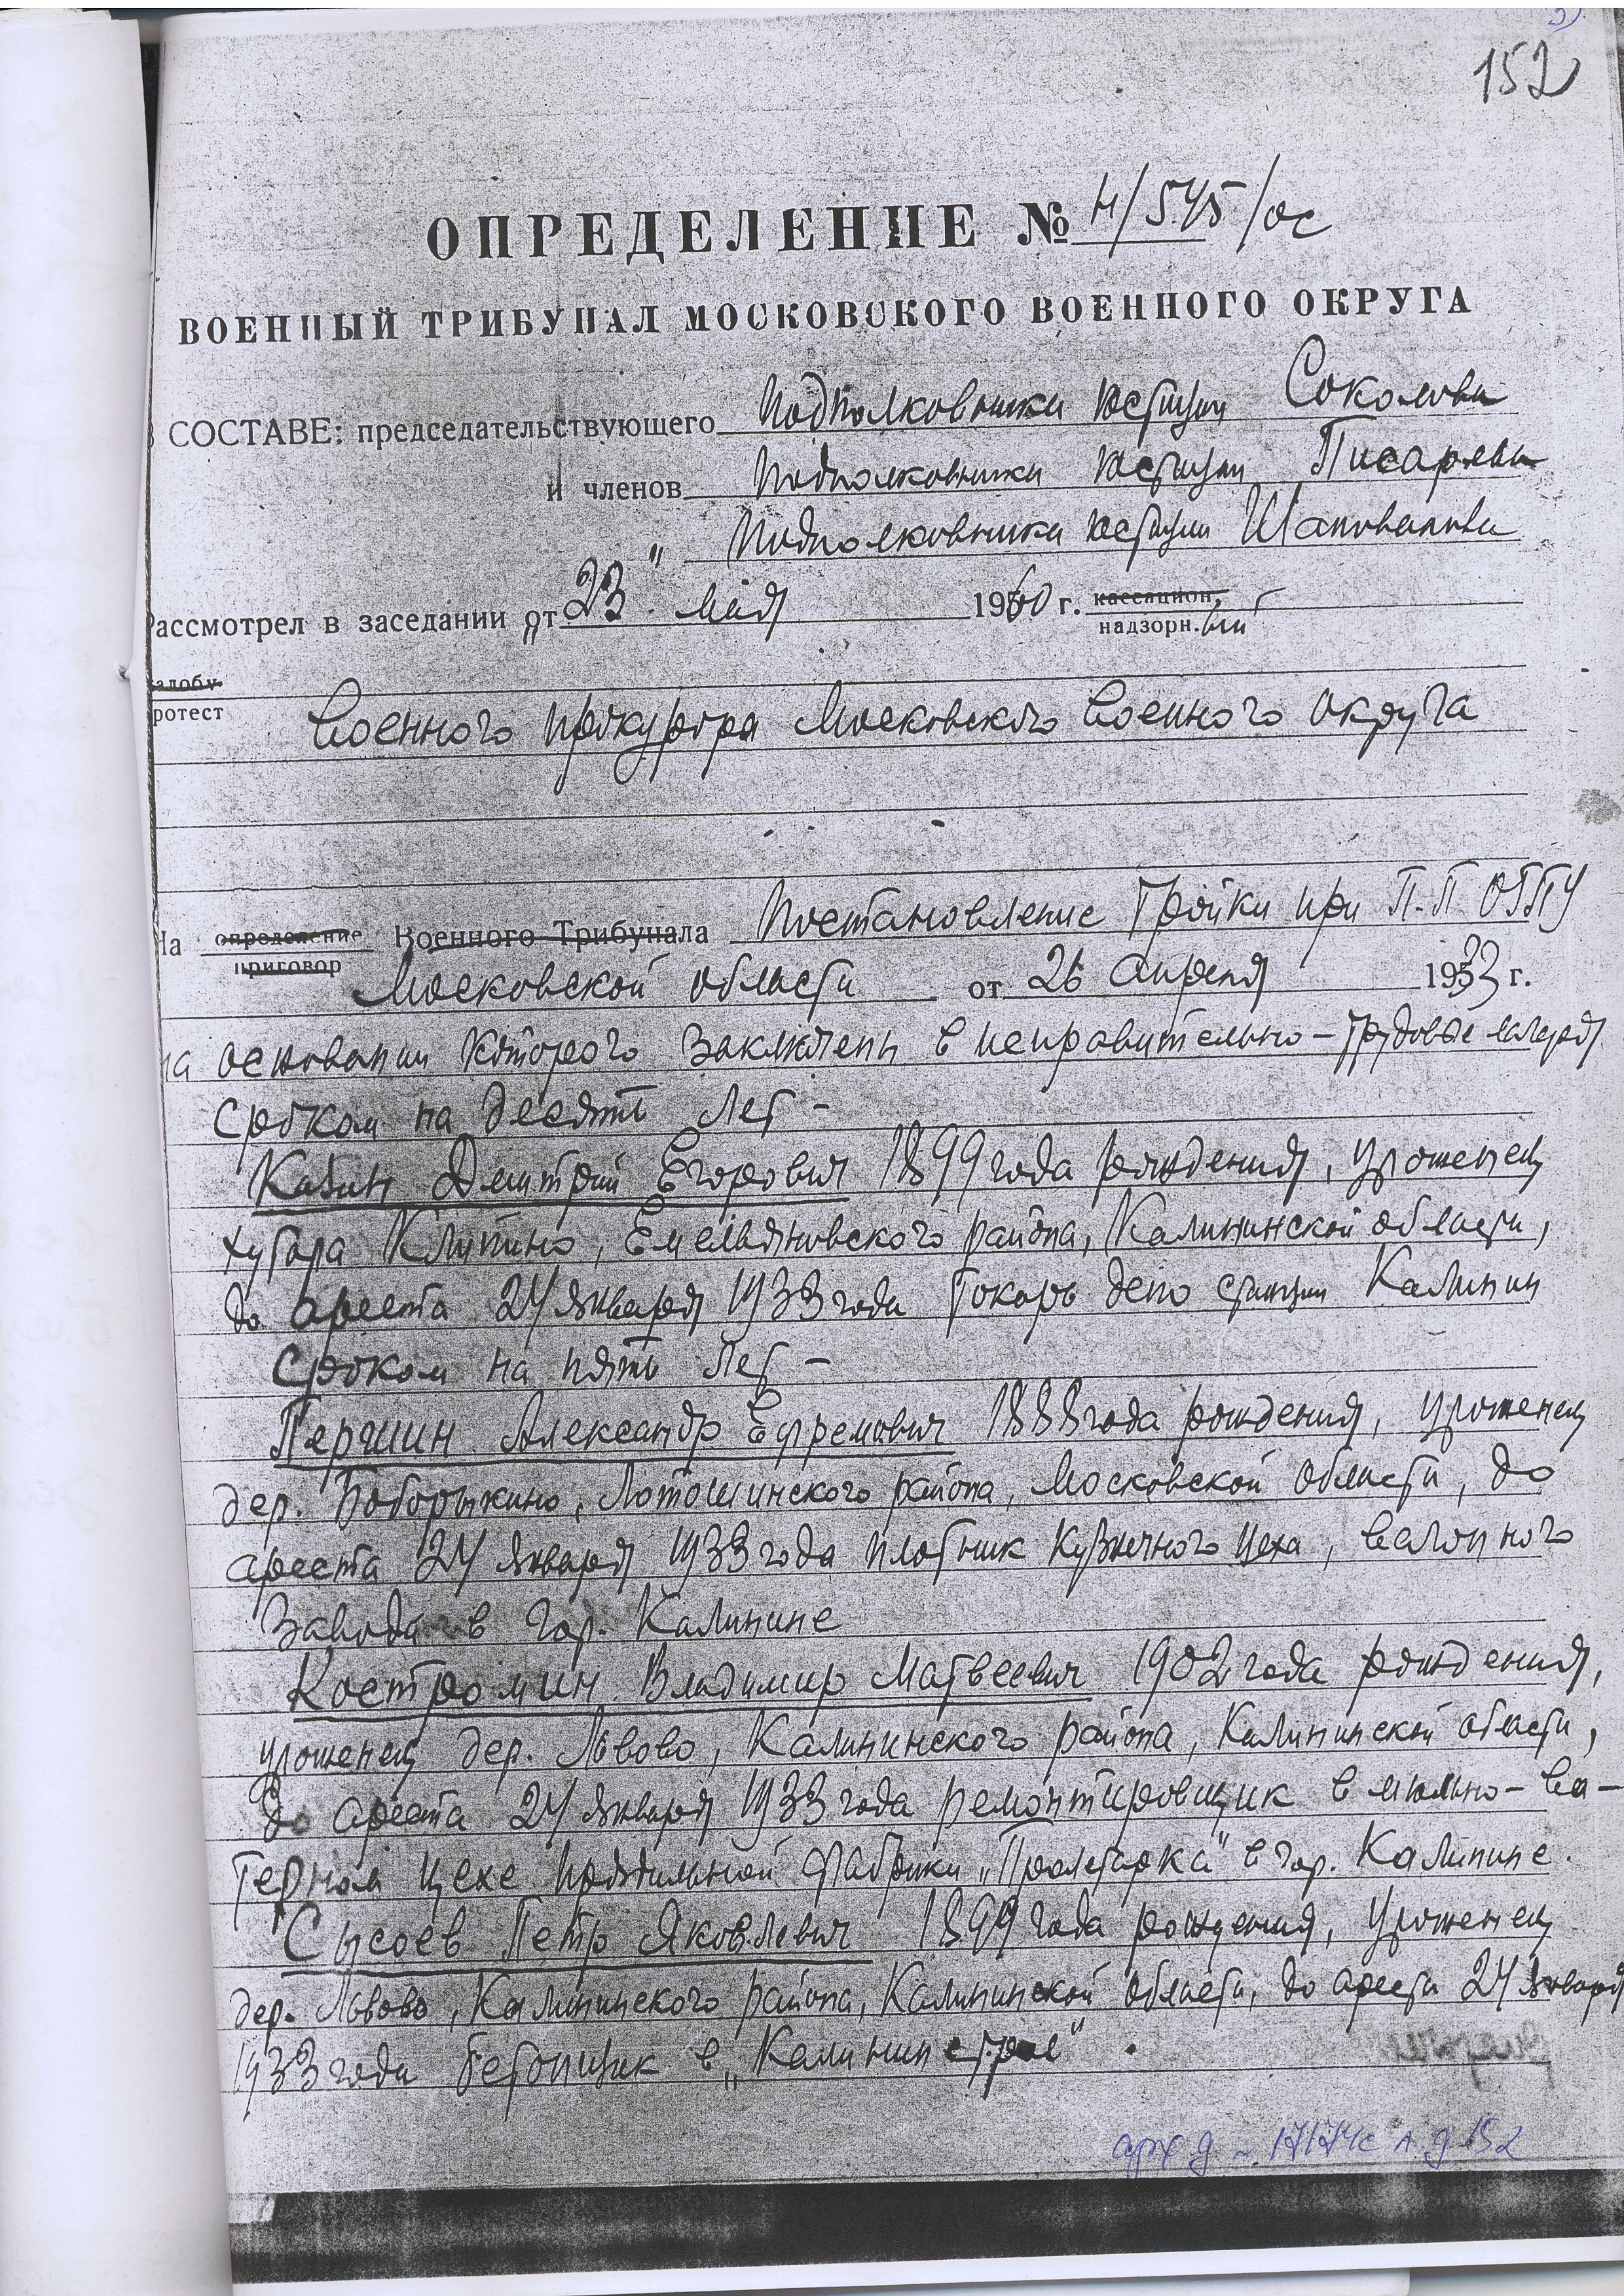 152
ОПРЕДЕЛЕНИЕ № н/545/ос
ВОЕННЫЙ ТРИБУНАЛ МОСКОВСКОГО ВОЕННОГО ОКРУГА
СОСТАВЕ: председательствующего Подполковника юстиции Соколова
и членов Подполковника юстиции Писарева
" Подполковника юстиции Шаповалова
Рассмотрел в заседании от 23 мая 1960 г. кассацион.
надзорн.
жалобу
протест
Военного прокурора Московского Военного округа
На определение Военного Трибунала Постановление Тройки при П.П ОГПУ
приговор
Московской области от 26 апреля 1933 г.
на основании которого заключены в исправительно-трудовые лагеря
сроком на десять лет -
Кабин Дмитрий Егорович 1899 года рождения, уроженец
хутора Клитино, Емельяновского района, Калининской области,
до ареста 24 января 1933 года токарь депо станции Калинин
сроком на пять лет -
Першин Александр Ефремович 1888 года рождения, уроженец
дер. Боборыкино, Лотошинского района, Московской области, до
ареста 24 января 1933 года плотник кузнечного цеха, вагонного
завода в гор. Калинине
Костромин Владимир Матвеевич 1902 года рождения,
уроженец дер. Львово, Калининского района, Калининской области,
до ареста 24 января 1933 года ремонтировщик в мюльно-ва-
терном цехе прядильной фабрики „Пролетарка" в гор. Калинине.
Сысоев Петр Яковлевич 1899 года рождения, уроженец
дер. Львово, Калининского района, Калининской области, до ареста 24 января
1933 года бетонщик в „Калининстрое".
арх д - 17174с л. д 152